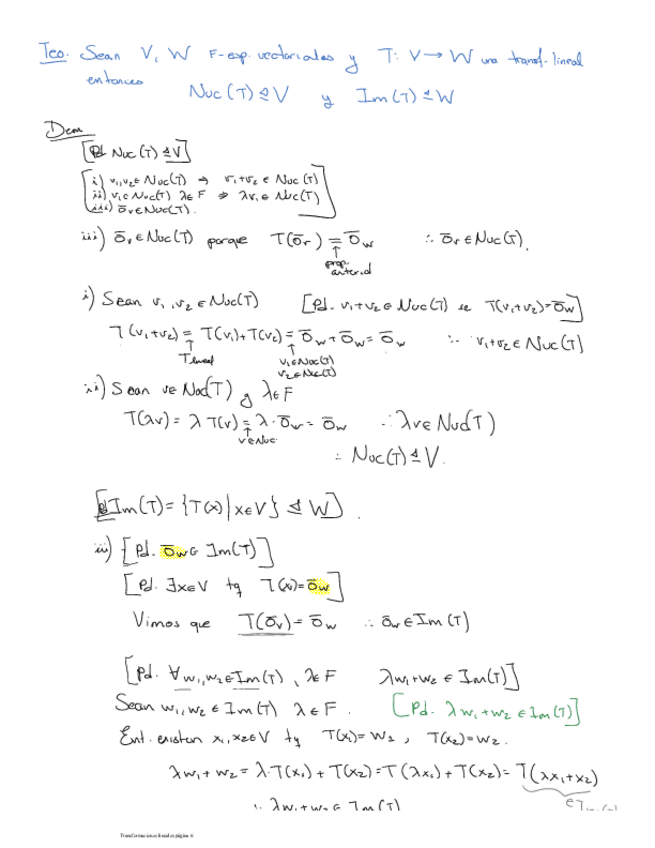 Teo. Sean V, W F-esp. vectoriales y T: V → W una transf. lineal
entonces Nuc(T) ⊴ V y Im(T) ⊴ W
Dem
[Pd Nuc(T) ⊴ V]
[i) v₁,v₂ ∈ Nuc(T) ⇒ v₁+v₂ ∈ Nuc(T)
ii) v₁ ∈ Nuc(T) λ∈F ⇒ λv₁ ∈ Nuc(T)
iii) 0̄v ∈ Nuc(T).]
iii) 0̄v ∈ Nuc(T) porque T(0̄v) = 0̄w ∴ 0̄v ∈ Nuc(T).
↑
prop. anterior
i) Sean v₁,v₂ ∈ Nuc(T) [Pd. v₁+v₂ ∈ Nuc(T) T(v₁+v₂)=0̄w]
T(v₁+v₂) = T(v₁)+T(v₂) = 0̄w + 0̄w = 0̄w ∴ v₁+v₂ ∈ Nuc(T)
↑ ↑
T lineal v₁∈Nuc(T)
v₂∈Nuc(T)
ii) Sean v∈Nuc(T) y λ∈F
T(λv) = λ T(v) = λ · 0̄w = 0̄w ∴ λv ∈ Nuc(T)
↑
v∈Nuc
∴ Nuc(T) ⊴ V.
[Pd Im(T) = {T(x) | x∈V} ⊴ W].
iii) [Pd. 0̄w ∈ Im(T)]
[Pd. ∃x∈V tq T(x) = 0̄w]
Vimos que T(0̄v) = 0̄w ∴ 0̄w ∈ Im(T)
[Pd. ∀w₁,w₂∈Im(T), λ∈F λw₁+w₂ ∈ Im(T)]
Sean w₁,w₂ ∈ Im(T) λ∈F. [Pd. λw₁+w₂ ∈ Im(T)]
Ent. existen x₁,x₂∈V tq T(x₁) = w₁, T(x₂) = w₂.
λw₁+w₂ = λ·T(x₁)+T(x₂) = T(λx₁)+T(x₂) = T(λx₁+x₂)
∴ λw₁+w₂ ∈ Im(T)
Transformaciones lineales página 6